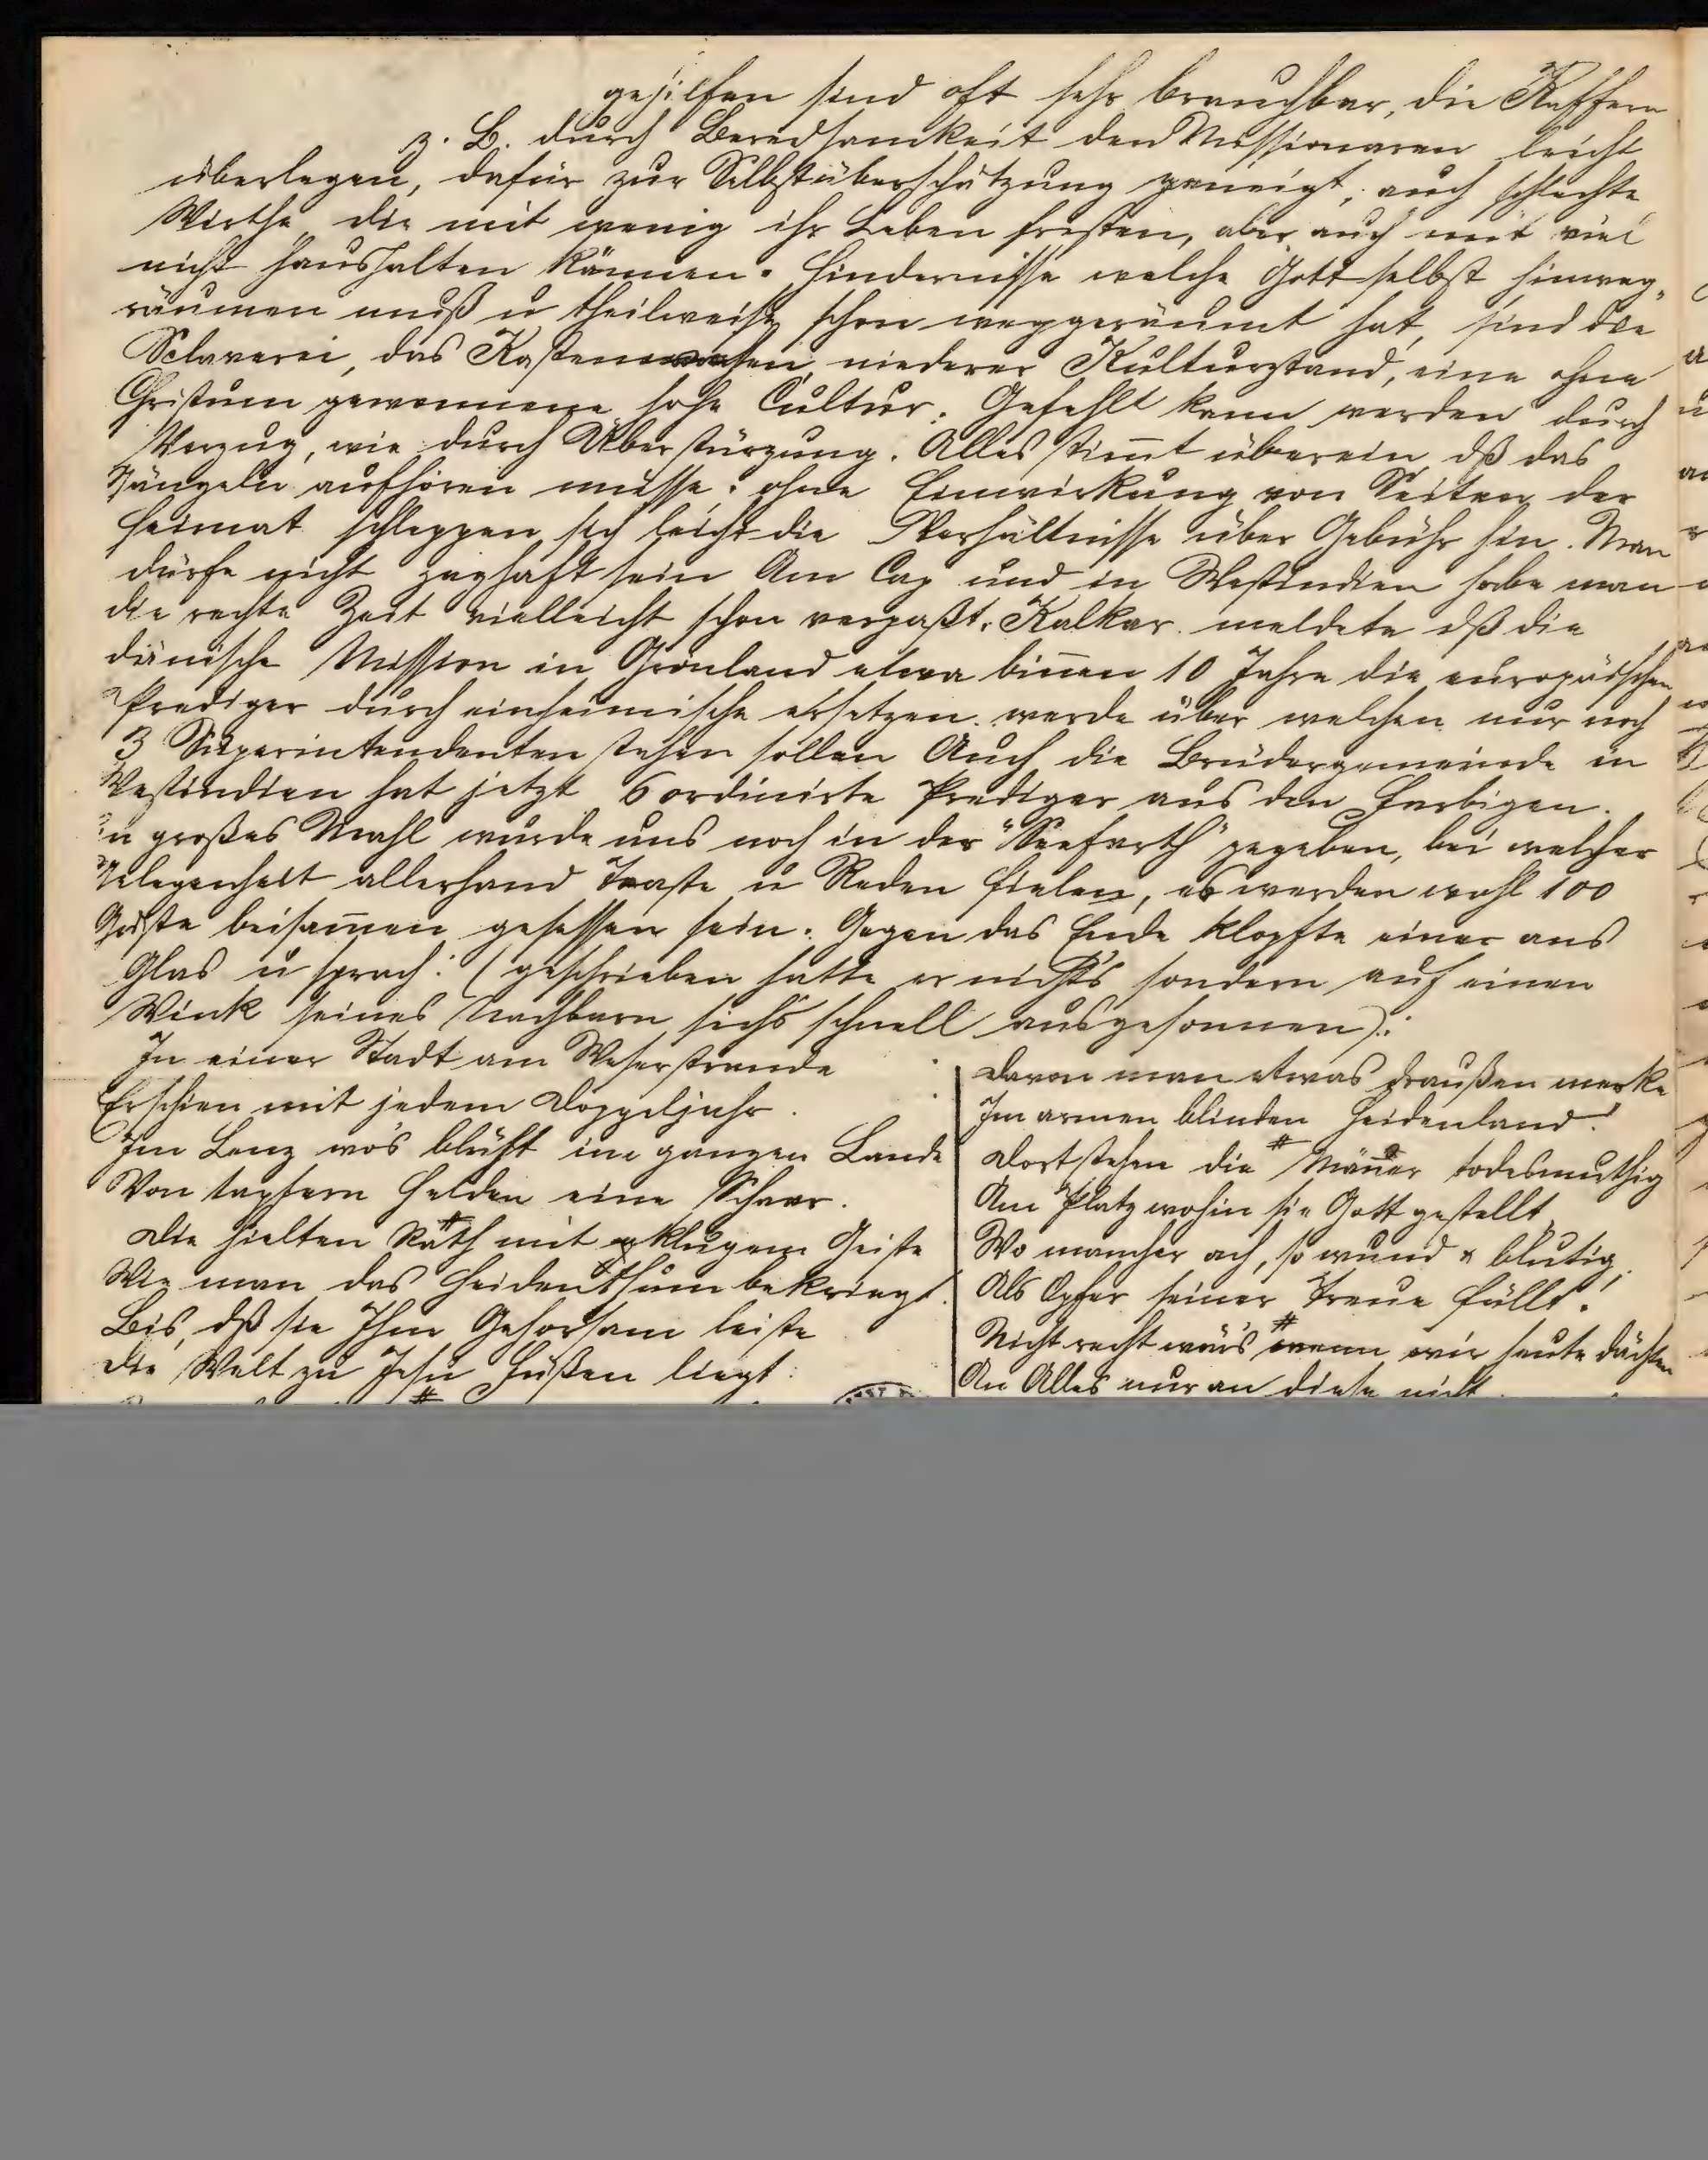 gehilfen sind oft sehr brauchbar, die Kaffern
z. B. durch Beredsamkeit den Missionaren leicht
überlegen, dafür zur Selbstüberschätzung geneigt, auch schlechte
Wirthe, die mit wenig ihr Leben fristen, aber auch mit viel
nicht haushalten können. Hindernisse welche Gott selbst hinweg„
räumen muß u theilweise schon weggeräumt hat, sind die
Sclaverei, das Kastenwesen, niederer Kulturstand, eine ohne
Christum gewonnene hohe Cultur. Gefehlt kann werden durch
Verzug, wie durch Überstürzung. Alles stimt überein dß das
Gängeln aufhören müsse; ohne Einwirkung von Seiten der
Heimat schleppen sich leicht die Verhältnisse über Gebühr hin. Man
dürfe nicht zaghaft sein Am Cap und in Westindien habe man
die rechte Zeit vielleicht schon verpaßt. Kalkar meldete dß die
dänische Mission in Grönland etwa binen 10 Jahre die europäischen
Prediger durch einheimische ersetzen werde über welchen nur noch
3 Superintendenten stehen sollen Auch die Brüdergemeinde in
Westindien hat jetzt 6 ordinirte Prediger aus den Farbigen.
in großes Mahl wurde uns noch in der "Seefarth" gegeben, bei welcher
Gelegenheit allerhand Toaste u Reden fielen, es werden wohl 100
Gäste beisamen gesessen sein. Gegen das Ende klopfte einer ans
Glas u sprach: (geschrieben hatte er nichts sondern auf einen
Wink seines Nachbarn sichs schnell ausgesonnen):
In einer Stadt am Weserstrande
Erschien mit jedem Doppeljahr
Im Lenz wo's blüht im ganzen Lande
Von tapfern Helden eine Schaar.
Die hielten Rath mit klugem Geiste
Wie man das Heidenthum bekriegt.
Bis, dß sie Ihm Gehorsam leiste
Die Welt zu Jesu Füßen liegt:
Davon man etwas draußen merke
Im armen blinden Heidenland!
Dort stehen die Mäner todesmuthig
Am Platz wohin sie Gott gestellt
Wo mancher ach, so wund & blutig
Als Opfer seiner Treue fällt!
Nicht recht wär's wenn wir heute dächten
An Alles nur an diese nicht